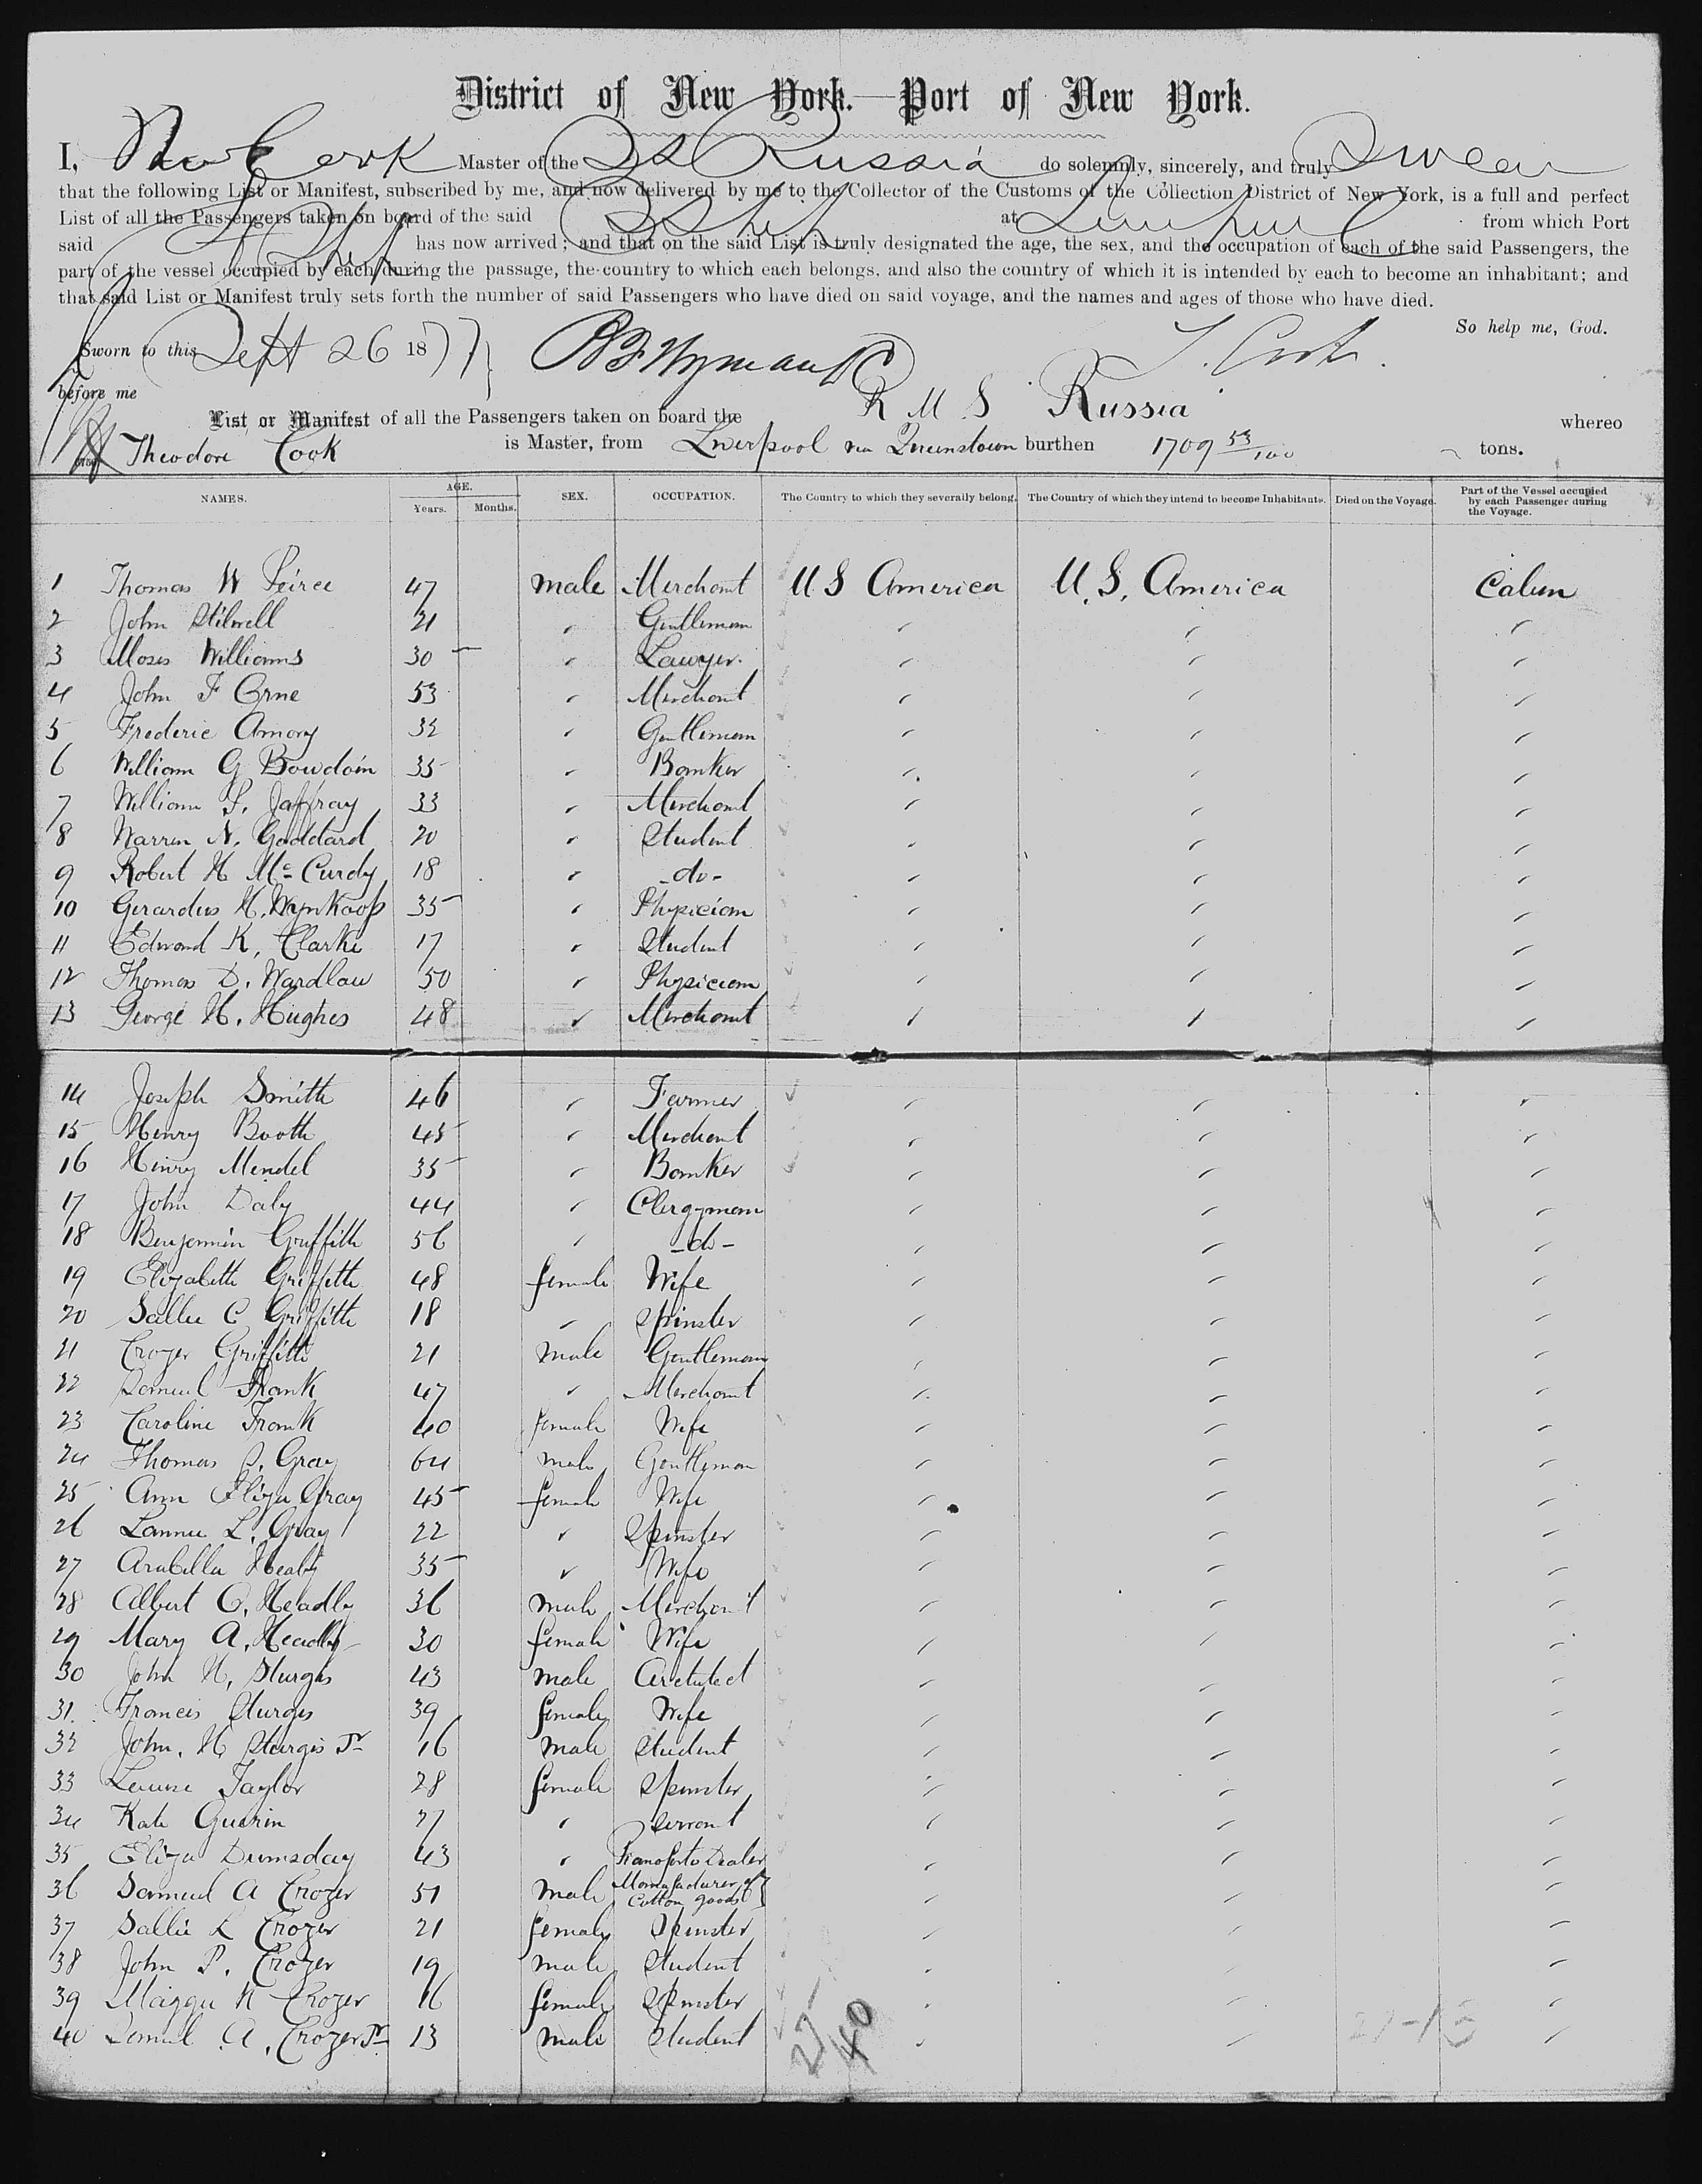 District of New York.—Port of New York.
I, Theo Cook Master of the SS Russia do solemnly, sincerely, and truly swear
that the following List or Manifest, subscribed by me, and now delivered by me to the Collector of the Customs of the Collection District of New York, is a full and perfect
List of all the Passengers taken on board of the said SShip at Liverpool from which Port
said SShip has now arrived; and that on the said List is truly designated the age, the sex, and the occupation of each of the said Passengers, the
part of the vessel occupied by each during the passage, the country to which each belongs, and also the country of which it is intended by each to become an inhabitant; and
that said List or Manifest truly sets forth the number of said Passengers who have died on said voyage, and the names and ages of those who have died.
So help me, God.
Sworn to this Sept 26 1877 T. Cook
before me
List or Manifest of all the Passengers taken on board the R M S Russia whereo
Theodore Cook is Master, from Liverpool via Queenstown burthen 1709 53/100 tons.
NAMES. AGE. Years. Months. SEX. OCCUPATION. The Country to which they severally belong. The Country of which they intend to become Inhabitants. Died on the Voyage. Part of the Vessel occupied by each Passenger during the Voyage.
1 Thomas W Peirce 47 male Merchant U S America U.S. America Cabin
2 John Stilwell 21 " Gentleman " " "
3 Moses Williams 30 " Lawyer " " "
4 John F Orne 53 " Merchant " " "
5 Frederic Amory 32 " Gentleman " " "
6 William G Bowdoin 35 " Banker " " "
7 William S. Jaffray 33 " Merchant " " "
8 Warren N. Goddard 20 " Student " " "
9 Robert H McCurdy 18 " -do- " " "
10 Gerardus H. Wynkoop 35 " Physician " " "
11 Edward K. Clarke 17 " Student " " "
12 Thomas D. Wardlaw 50 " Physician " " "
13 George H. Hughes 48 " Merchant " " "
14 Joseph Smith 46 " Farmer " " "
15 Henry Booth 45 " Merchant " " "
16 Henry Mendel 35 " Banker " " "
17 John Daly 44 " Clergyman " " "
18 Benjamin Griffith 56 " -do- " " "
19 Elizabeth Griffith 48 female Wife " " "
20 Sallie C Griffith 18 " Spinster " " "
21 Crozer Griffith 21 male Gentleman " " "
22 Samuel Frank 47 " Merchant " " "
23 Caroline Frank 40 female Wife " " "
24 Thomas S. Gray 64 male Gentleman " " "
25 Ann Eliza Gray 45 female Wife " " "
26 L. Gray 22 " Spinster " " "
27 Arabella Healy 35 " Wife " " "
28 Albert O. Headly 36 male Merchant " " "
29 Mary A. Headly 30 female Wife " " "
30 John H. Sturgis 43 male Architect " " "
31. Frances Sturgis 39 female Wife " " "
32 John. H Sturgis Jr 16 male Student " " "
33 Louise Taylor 28 female Spinster " " "
34 Kate Guerin 27 " Servant " " "
35 Eliza Dumsday 43 " Pianoforte Dealer " " "
36 Samuel A Crozer 51 male Manufacturer of Cotton goods " " "
37 Sallie L Crozer 21 female Spinster " " "
38 John P. Crozer 19 male Student " " "
39 Maggie K Crozer 16 female Spinster " " "
40 Samuel A. Crozer Jr 13 male Student " " "
27
40
27-13